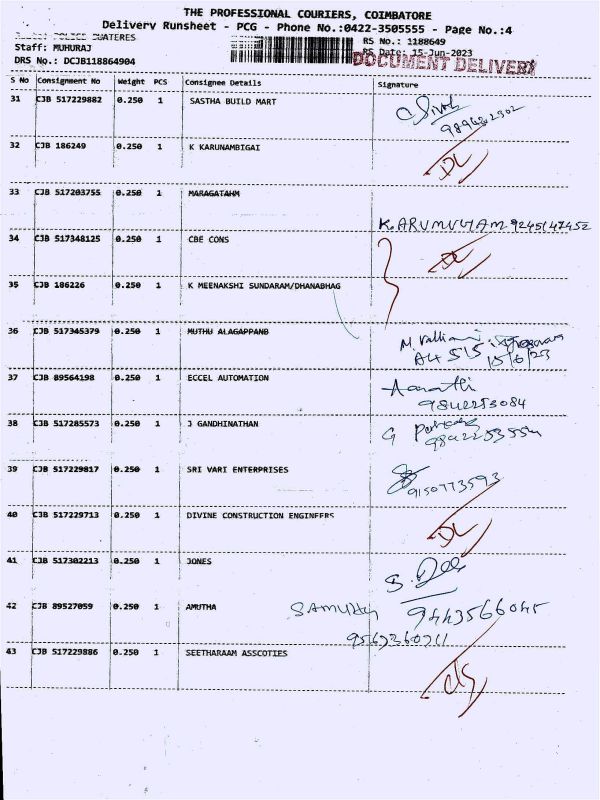 THE PROFESSIONAL COURIERS, COIMBATORE
Delivery Runsheet - PCG - Phone No.:0422-3505555 - Page No.:4
RS No.: 1188649
Staff: MUHURAJ
RS Date: 15-Jun-2023
DRS No.: DCJB118864904
DOCUMENT DELIVERY
S No Consignment No Weight PCS Consignee Details Signature
31 CJB 517229882 0.250 1 SASTHA BUILD MART
32 CJB 186249 0.250 1 K KARUNAMBIGAI
DL
33 CJB 517203755 0.250 1 MARAGATAHM
K.ARUMUGAM 9245147452
34 CJB 517348125 0.250 1 CBE CONS
DL
35 CJB 186226 0.250 1 K MEENAKSHI SUNDARAM/DHANABHAG
36 CJB 517345379 0.250 1 MUTHU ALAGAPPAND
15/6/23
37 CJB 89564198 0.250 1 ECCEL AUTOMATION
9842253084
38 CJB 517285573 0.250 1 J GANDHINATHAN
39 CJB 517229817 0.250 1 SRI VARI ENTERPRISES
9150773593
40 CJB 517229713 0.250 1 DIVINE CONSTRUCTION ENGINEERS
DL
41 CJB 517302213 0.250 1 JONES
42 CJB 89527059 0.250 1 AMUTHA
9443566045
43 CJB 517229886 0.250 1 SEETHARAAM ASSCOTIES